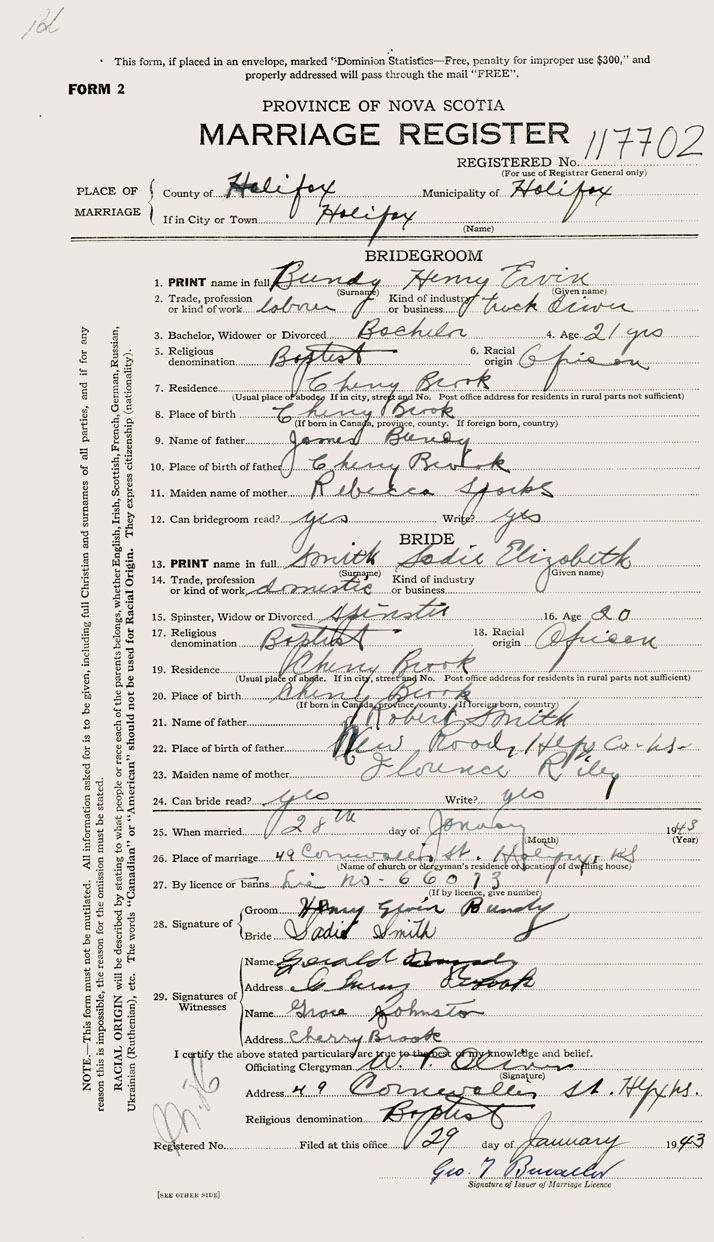 This form, if placed in an envelope, marked "Dominion Statistics—Free, penalty for improper use $300," and
properly addressed will pass through the mail "FREE".
FORM 2
PROVINCE OF NOVA SCOTIA
MARRIAGE REGISTER
REGISTERED No. 117702
(For use of Registrar General only)
PLACE OF MARRIAGE
County of Halifax Municipality of Halifax
If in City or Town Halifax
(Name)
BRIDEGROOM
1. PRINT name in full Bundy Henry Ervin
(Surname) (Given name)
2. Trade, profession or kind of work laborer Kind of industry or business truck driver
3. Bachelor, Widower or Divorced Bachelor 4. Age 21 yrs
5. Religious denomination Baptist 6. Racial origin African
7. Residence Cherry Brook
(Usual place of abode. If in city, street and No. Post office address for residents in rural parts not sufficient)
8. Place of birth Cherry Brook
(If born in Canada, province, county. If foreign born, country)
9. Name of father James Bundy
10. Place of birth of father Cherry Brook
11. Maiden name of mother Rebecca Sparks
12. Can bridegroom read? yes Write? yes
BRIDE
13. PRINT name in full Smith Sadie Elizabeth
(Surname) (Given name)
14. Trade, profession or kind of work domestic Kind of industry or business
15. Spinster, Widow or Divorced Spinster 16. Age 20
17. Religious denomination Baptist 18. Racial origin African
19. Residence Cherry Brook
(Usual place of abode. If in city, street and No. Post office address for residents in rural parts not sufficient)
20. Place of birth Cherry Brook
(If born in Canada, province, county. If foreign born, country)
21. Name of father Robert Smith
22. Place of birth of father New Road, Hfx Co- NS-
23. Maiden name of mother Florence Riley
24. Can bride read? yes Write? yes
25. When married 28th day of January 1943
(Month) (Year)
26. Place of marriage 49 Cornwallis St. Halifax, NS
(Name of church or clergyman's residence or location of dwelling house)
27. By licence or banns Lis no- 66073
(If by licence, give number)
28. Signature of
Groom Henry Ervin Bundy
Bride Sadie Smith
29. Signatures of Witnesses
Name Gerald
Address Cherry Brook
Name Grace Johnston
Address Cherry Brook
I certify the above stated particulars are true to the best of my knowledge and belief.
Officiating Clergyman W. P. Oliver
(Signature)
Address 49 Cornwallis St. Hfx NS.
Religious denomination Baptist
Registered No. Filed at this office 29 day of January 1943
Geo. T
Signature of Issuer of Marriage Licence
[SEE OTHER SIDE]
NOTE.—This form must not be mutilated. All information asked for is to be given, including full Christian and surnames of all parties, and if for any
reason this is impossible, the reason for the omission must be stated.
RACIAL ORIGIN will be described by stating to what people or race each of the parents belongs, whether English, Irish, Scottish, French, German, Russian,
Ukrainian (Ruthenian), etc. The words "Canadian" or "American" should not be used for Racial Origin. They express citizenship (nationality).